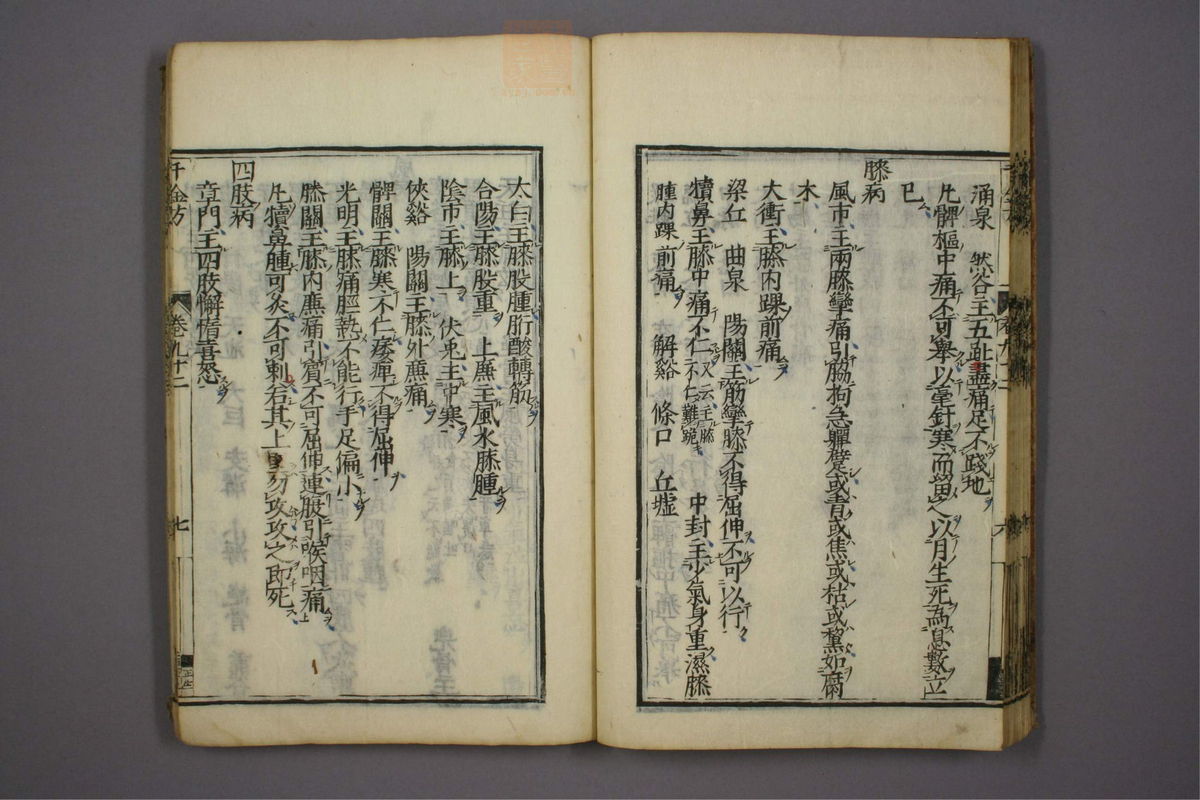 涌泉　然谷主五趾盡痛足不踐地
凡髀樞中痛不可舉以毫針寒而留之以月生死爲息數立
已
膝病
風市主兩膝攣痛引脇拘急軃躄或青或焦或枯或黧如腐
木
大衝主膝内踝前痛
梁丘　曲泉　陽關主筋攣膝不得屈伸不可以行
犢鼻主膝中痛不仁又云主膝不仁難跪　中封主少氣身重濕膝
腫内踝前痛　解谿　條口　丘墟
太白主膝股腫胻酸轉筋
合陽主膝股重　上廉主風水膝腫
陰市主膝上　伏兎主中寒
俠谿　陽關主膝外廉痛
髀關主膝寒不仁痿痺不得屈伸
光明主膝痛脛熱不能行手足偏小
膝關主膝内廉痛引髕不可屈伸連腹引喉咽痛
凡犢鼻腫可灸不可刺若其上堅勿攻攻之即死
四肢病
章門主四肢懈惰喜怒
千金方
卷九十二
七